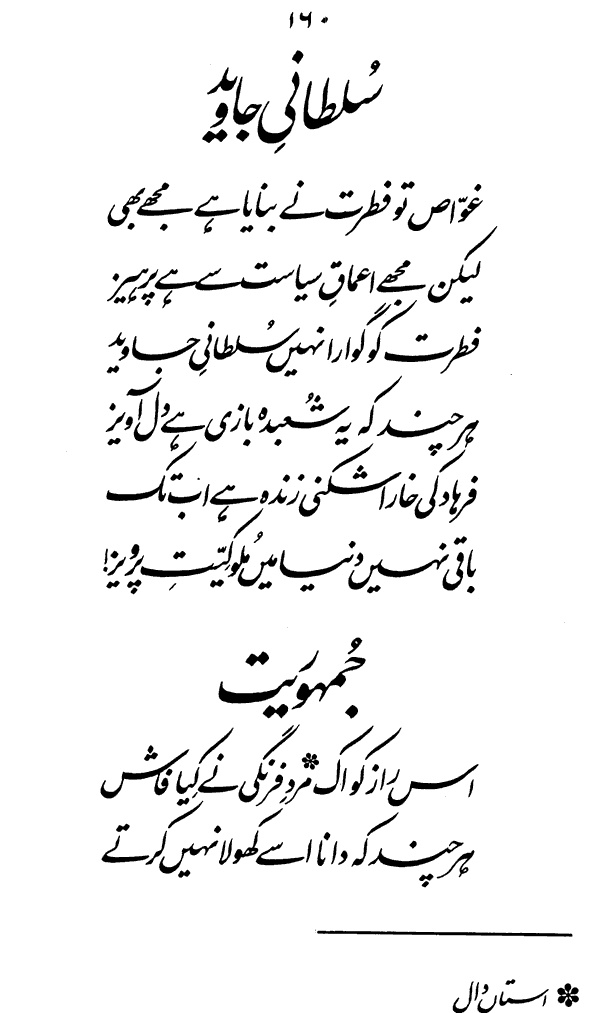 ۱۶۰
سُلطانیِ جاوید
غوّاص تو فطرت نے بنایا ہے مجھے بھی
لیکن مجھے اعماقِ سیاست سے ہے پرہیز
فطرت کو گوارا نہیں سُلطانیِ جاوید
ہر چند کہ یہ شُعبدہ بازی ہے دل آویز
فرہاد کی خارا شکنی زندہ ہے اب تک
باقی نہیں دنیا میں مُلوکیّتِ پرویز!
جُمہوریت
اس راز کو اک * مردِ فرنگی نے کِیا فاش
ہر چند کہ دانا اسے کھولا نہیں کرتے
* استاں دال